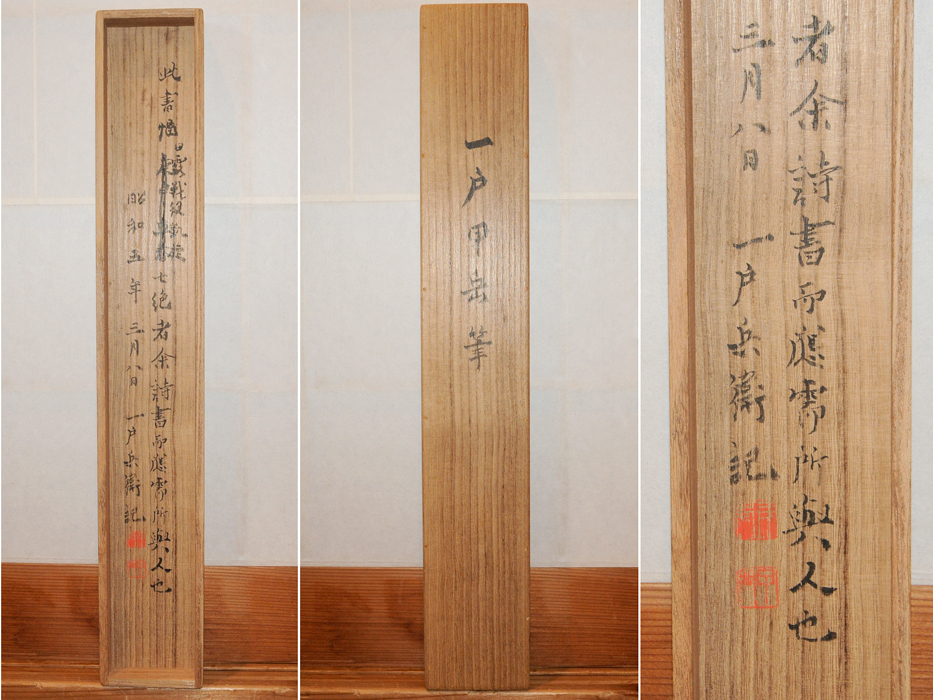 此書幅
七絶者余詩書而應需所與人也
昭和五年三月八日一戸兵衛記
一戸甲岳筆
者余詩書而應需所與人也
三月八日一戸兵衛記